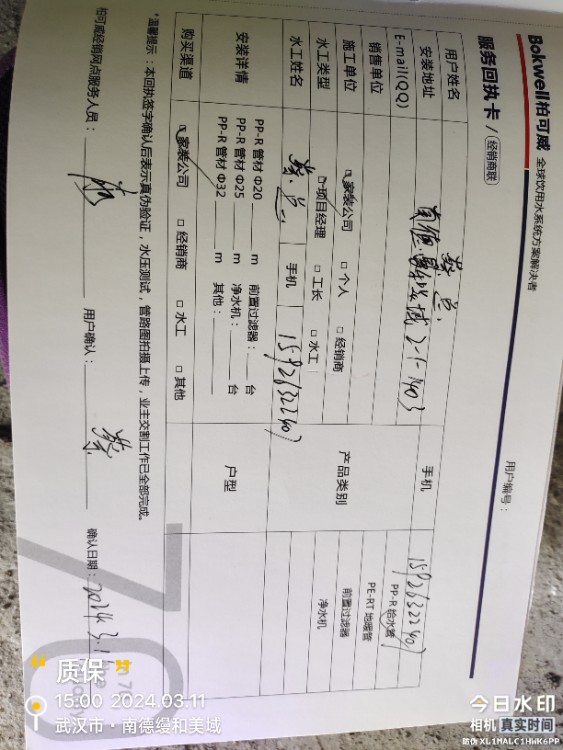 Bokwell柏可威 全球饮用水系统方案解决者
用户编号：
服务回执卡 / 经销商联
用户姓名 手机 15926322407
安装地址 南德缦和美域 2-1-1403
E-mail(QQ)
销售单位
施工单位 家装公司 □ 个人 □ 经销商
水工类型 项目经理 □ 工长 □ 水工
水工姓名 手机 15926322407
产品类别
PP-R 给水管
PE-RT 地暖管
前置过滤器
净水机
安装详情
PP-R 管材 Φ20 m 前置过滤器： 台
PP-R 管材 Φ25 m 净水机： 台
PP-R 管材 Φ32 m 其他：
户型
购买渠道 家装公司 □ 经销商 □ 水工 □ 其他
*温馨提示：本回执签字确认后表示真伪验证，水压测试，管路图拍摄上传，业主交割工作已全部完成。
柏可威经销网点服务人员： 用户确认： 确认日期：2024.3.11
质保
15:00 2024.03.11
武汉市·南德缦和美域
今日水印
相机 真实时间
防伪 XL1MALC1HWK6PP